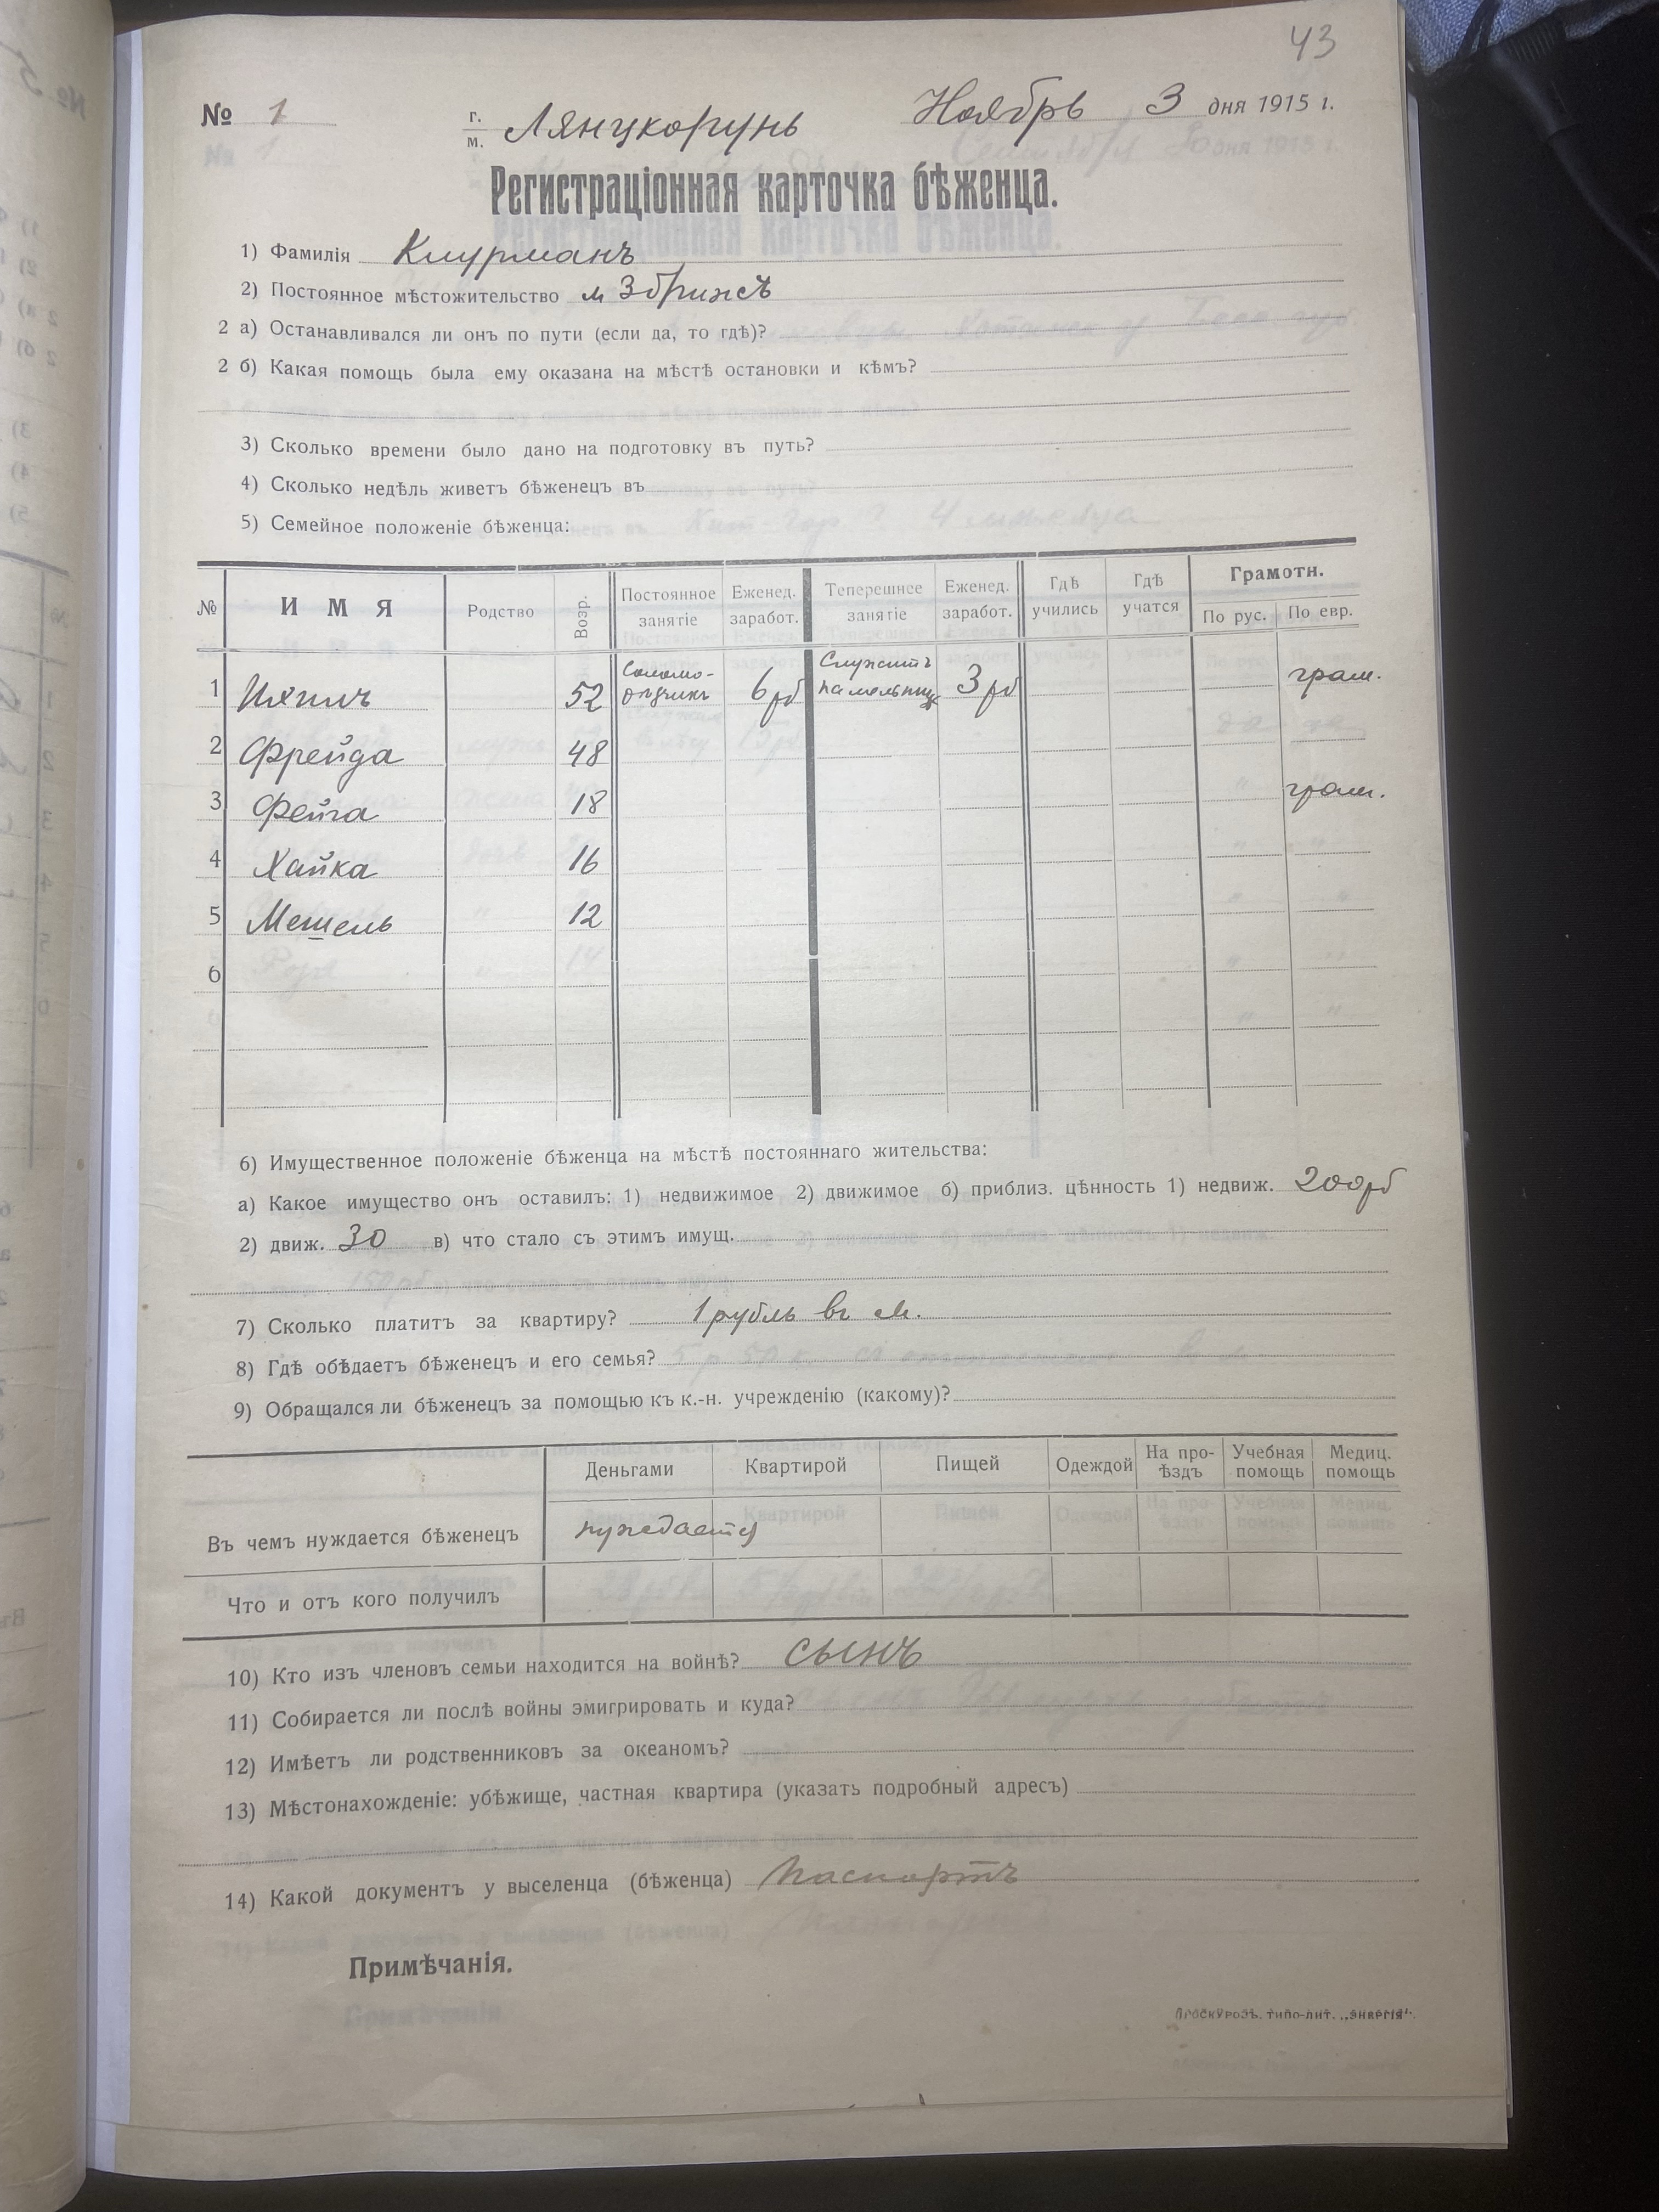 43
№ 1 г. м. Лянцкорунь Ноябрь 3 дня 1915 г.
Регистраціонная карточка бѣженца.
1) Фамилія Клурманъ
2) Постоянное мѣстожительство м Збрижъ
2 а) Останавливался ли онъ по пути (если да, то гдѣ)?
2 б) Какая помощь была ему оказана на мѣстѣ остановки и кѣмъ?
3) Сколько времени было дано на подготовку въ путь?
4) Сколько недѣль живетъ бѣженецъ въ
5) Семейное положеніе бѣженца:
№ ИМЯ Родство Возр. Постоянное занятіе Еженед. заработ. Теперешнее занятіе Еженед. заработ. Гдѣ учились Гдѣ учатся Грамотн. По рус. По евр.
1 Ихилъ 52 Соломо-рѣзникъ 6 рб Служитъ на мельницѣ 3 рб грам.
2 Фрейда 48
3 Фейга 18 грам.
4 Хайка 16
5 Мешель 12
6
6) Имущественное положеніе бѣженца на мѣстѣ постояннаго жительства:
а) Какое имущество онъ оставилъ: 1) недвижимое 2) движимое б) приблиз. цѣнность 1) недвиж. 200рб
2) движ. 30 в) что стало съ этимъ имущ.
7) Сколько платитъ за квартиру? 1 рубль въ м.
8) Гдѣ обѣдаетъ бѣженецъ и его семья?
9) Обращался ли бѣженецъ за помощью къ к.-н. учрежденію (какому)?
Деньгами Квартирой Пищей Одеждой На про-ѣздъ Учебная помощь Медиц. помощь
Въ чемъ нуждается бѣженецъ нуждается
Что и отъ кого получилъ
10) Кто изъ членовъ семьи находится на войнѣ? сынъ
11) Собирается ли послѣ войны эмигрировать и куда?
12) Имѣетъ ли родственниковъ за океаномъ?
13) Мѣстонахожденіе: убѣжище, частная квартира (указать подробный адресъ)
14) Какой документъ у выселенца (бѣженца) паспортъ
Примѣчанія.
Проскуровъ. типо-лит. „Энергія".